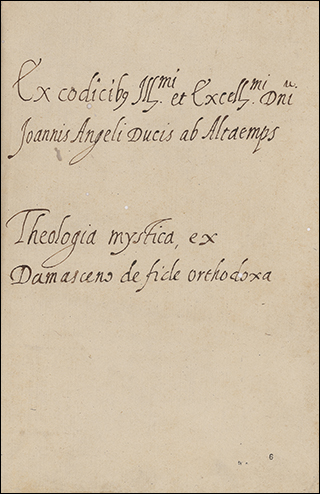 Ex codicib9 Ill.mi et Excell.mi Dni
Joannis Angeli Ducis ab Altaemps
Theologia mystica, ex
Damasceno de fide orthodoxa
6